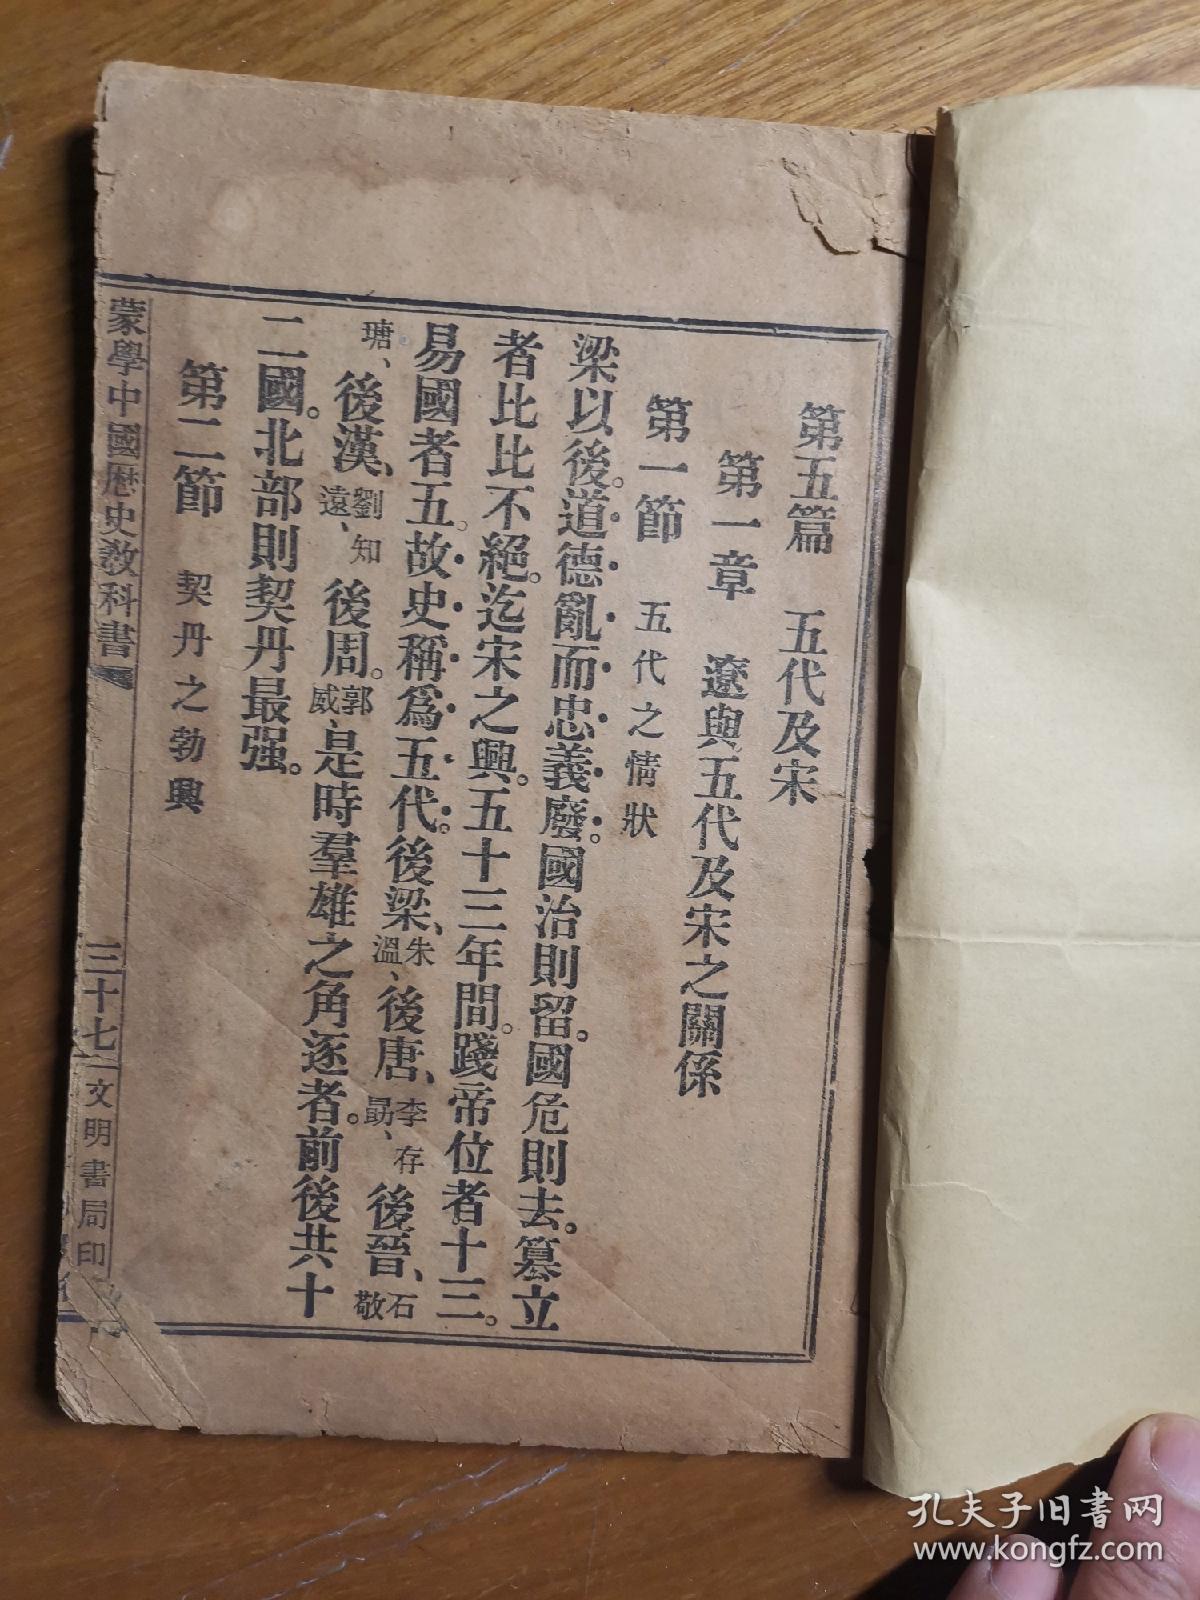 第五篇　五代及宋
第一章　遼與五代及宋之關係
第一節　五代之情狀
梁以後。道德亂而忠義廢。國治則留。國危則去。篡立
者比比不絕。迄宋之興。五十三年間。踐帝位者十三。
易國者五。故史稱爲五代。後梁、朱溫、後唐、李存勗、後晉、石敬
瑭、後漢、劉知遠、後周。郭威、是時羣雄之角逐者。前後共十
二國。北部則契丹最强。
第二節　契丹之勃興
蒙學中國歷史教科書　三十七　文明書局印
孔夫子旧书网
www.kongfz.com